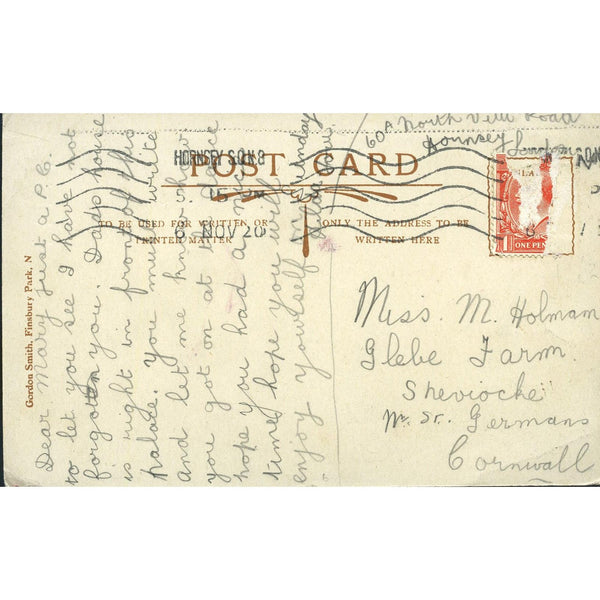 60A North View Road
Hornsey London
HORNSEY S.O. N.8
5. 15 PM
6 NOV 20
POST CARD
TO BE USED FOR WRITTEN OR
PRINTER MATTER
ONLY THE ADDRESS TO BE
WRITTEN HERE
ONE PEN
Gordon Smith, Finsbury Park, N
Dear Mary just a P.C.
to let you see I have not
forgotten you. Dads house
is right in front of this
palace. You must write
and let me know how
you got on at the
hope you had a good
time, hope you will
enjoy yourself Saturday
Miss. M. Holmam
Glebe Farm.
Sheviocke
Nr St. Germans
Cornwall